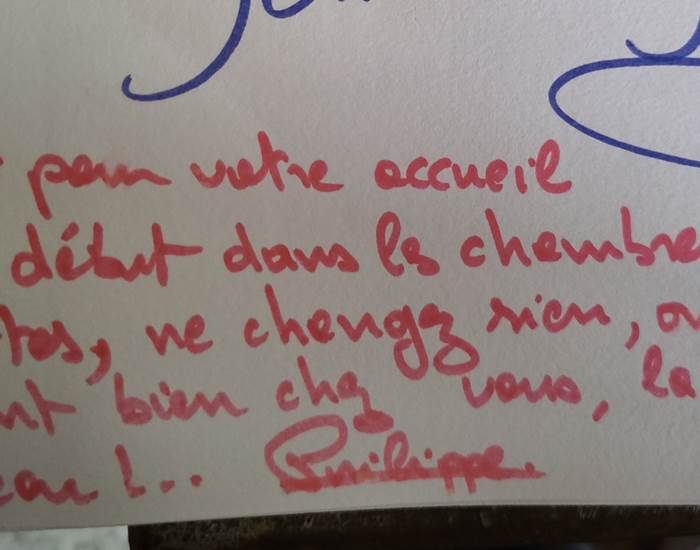 pour votre accueil
début dans les chambre
tes, ne changez rien, on
nt bien chez vous, la
eau !.. Philippe.